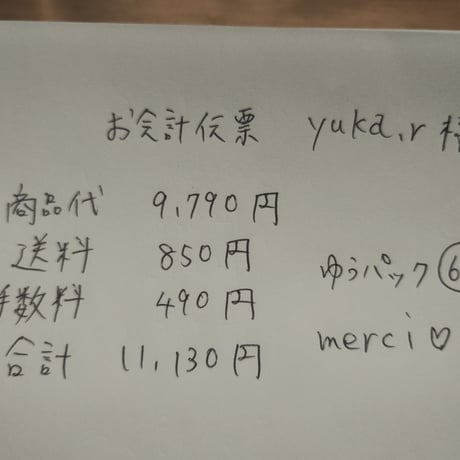 お会計伝票 yuka.r 様
商品代 9,790円
送料 850円
手数料 490円
ゆうパック⑥
合計 11,130円
merci♡